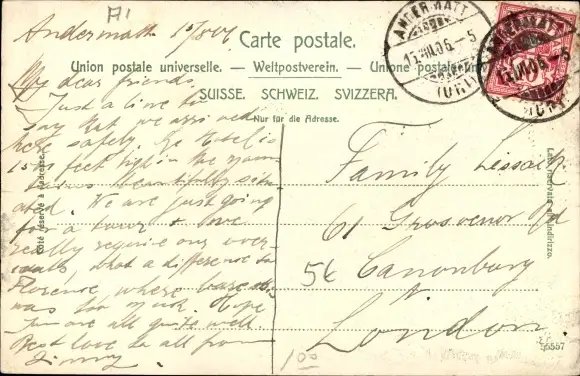 A1
Andermatt 15/8/06
Carte postale.
Union postale universelle. — Weltpostverein. — Unione postale
SUISSE. SCHWEIZ. SVIZZERA.
Nur für die Adresse.
Côté réservé à l'adresse.
Lato riservato all'indirizzo.
ANDERMATT
(URI)
ANDERMATT
(URI)
My dear friends,
Just a line to
say that we arrived
here safely. Hotel is
feet high in the moun-
tains beautifully situ-
ated. We are just going
for a tour & love
really require our over-
coats, what a difference to
Florence where
was too much Hope
you are all quite well.
Best love to all from
Jimmy
Family
61 Grosvenor Rd
56 Canonbury
N
London
100